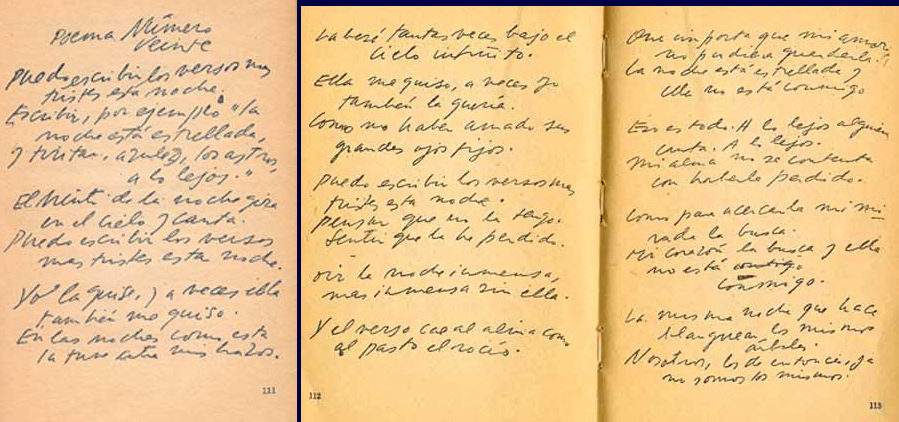 Poema Número
Veinte
Puedo escribir los versos mas
tristes esta noche.
Escribir, por ejemplo "la
noche está estrellada,
y tiritan, azules, los astros,
a lo lejos."
El viento de la noche gira
en el cielo y canta.
Puedo escribir los versos
mas tristes esta noche.
Yo la quise, y a veces ella
también me quiso.
En las noches como esta
la tuve entre mis brazos.
111
La besé tantas veces bajo el
cielo infinito.
Ella me quiso, a veces yo
también la quería.
Como no haber amado sus
grandes ojos fijos.
Puedo escribir los versos mas
tristes esta noche.
Pensar que no la tengo.
Sentir que la he perdido.
Oir la noche inmensa,
mas inmensa sin ella.
Y el verso cae al alma como
al pasto el rocío.
112
Que importa que mi amor
no pudiera guardarla.
La noche está estrellada y
ella no está conmigo
Eso es todo. A lo lejos alguien
canta. A lo lejos.
Mi alma no se contenta
con haberla perdido.
Como para acercarla mi mi
rada la busca.
Mi corazón la busca y ella
no está contigo
conmigo.
La misma noche que hace
blanquear los mismos
árboles.
Nosotros, los de entonces, ya
no somos los mismos.
113